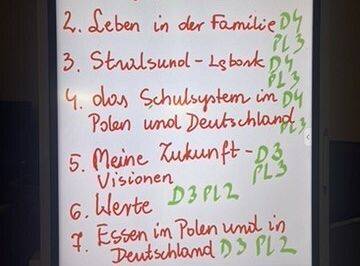 2. Leben in der Familie D4
PL3
3. Stralsund - Lębork D4
PL3
4. das Schulsystem in D4
Polen und Deutschland PL3
5. Meine Zukunft - D3
Visionen PL3
6. Werte D3 PL2
7. Essen in Polen und in
Deutschland D3 PL2